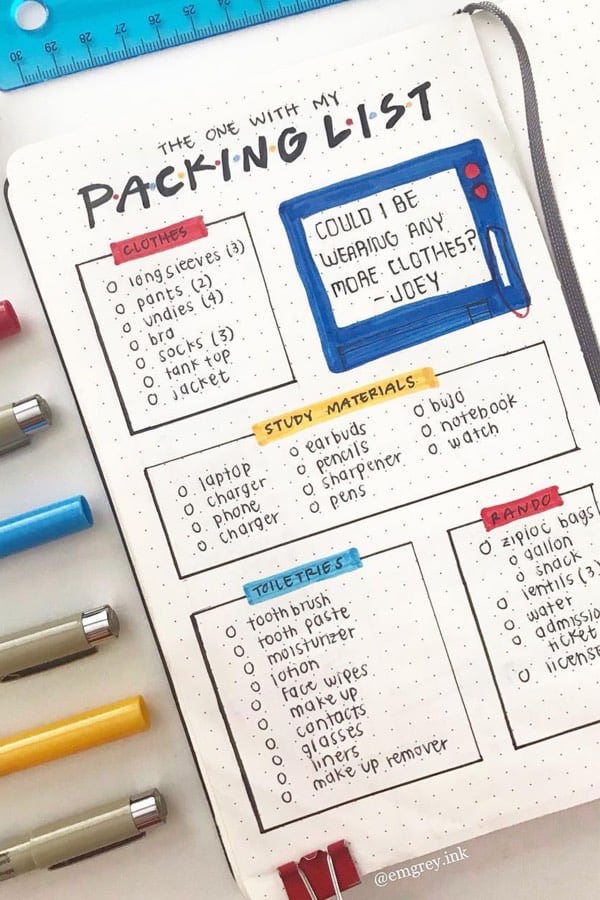 30 29 28 27 26 25
THE ONE WITH MY
P·A·C·K·I·N·G L·I·S·T
CLOTHES
long sleeves (3)
pants (2)
undies (4)
bra
socks (3)
tank top
jacket
COULD I BE
WEARING ANY
MORE CLOTHES?
-JOEY
STUDY MATERIALS
laptop
charger
phone
charger
earbuds
pencils
sharpener
pens
bujo
notebook
watch
TOILETRIES
toothbrush
tooth paste
moisturizer
lotion
face wipes
make up
contacts
glasses
liners
make up remover
RANDO
ziploc bags
gallon
snack
lentils (3
water
admissio
ticket
license
@emgrey.ink